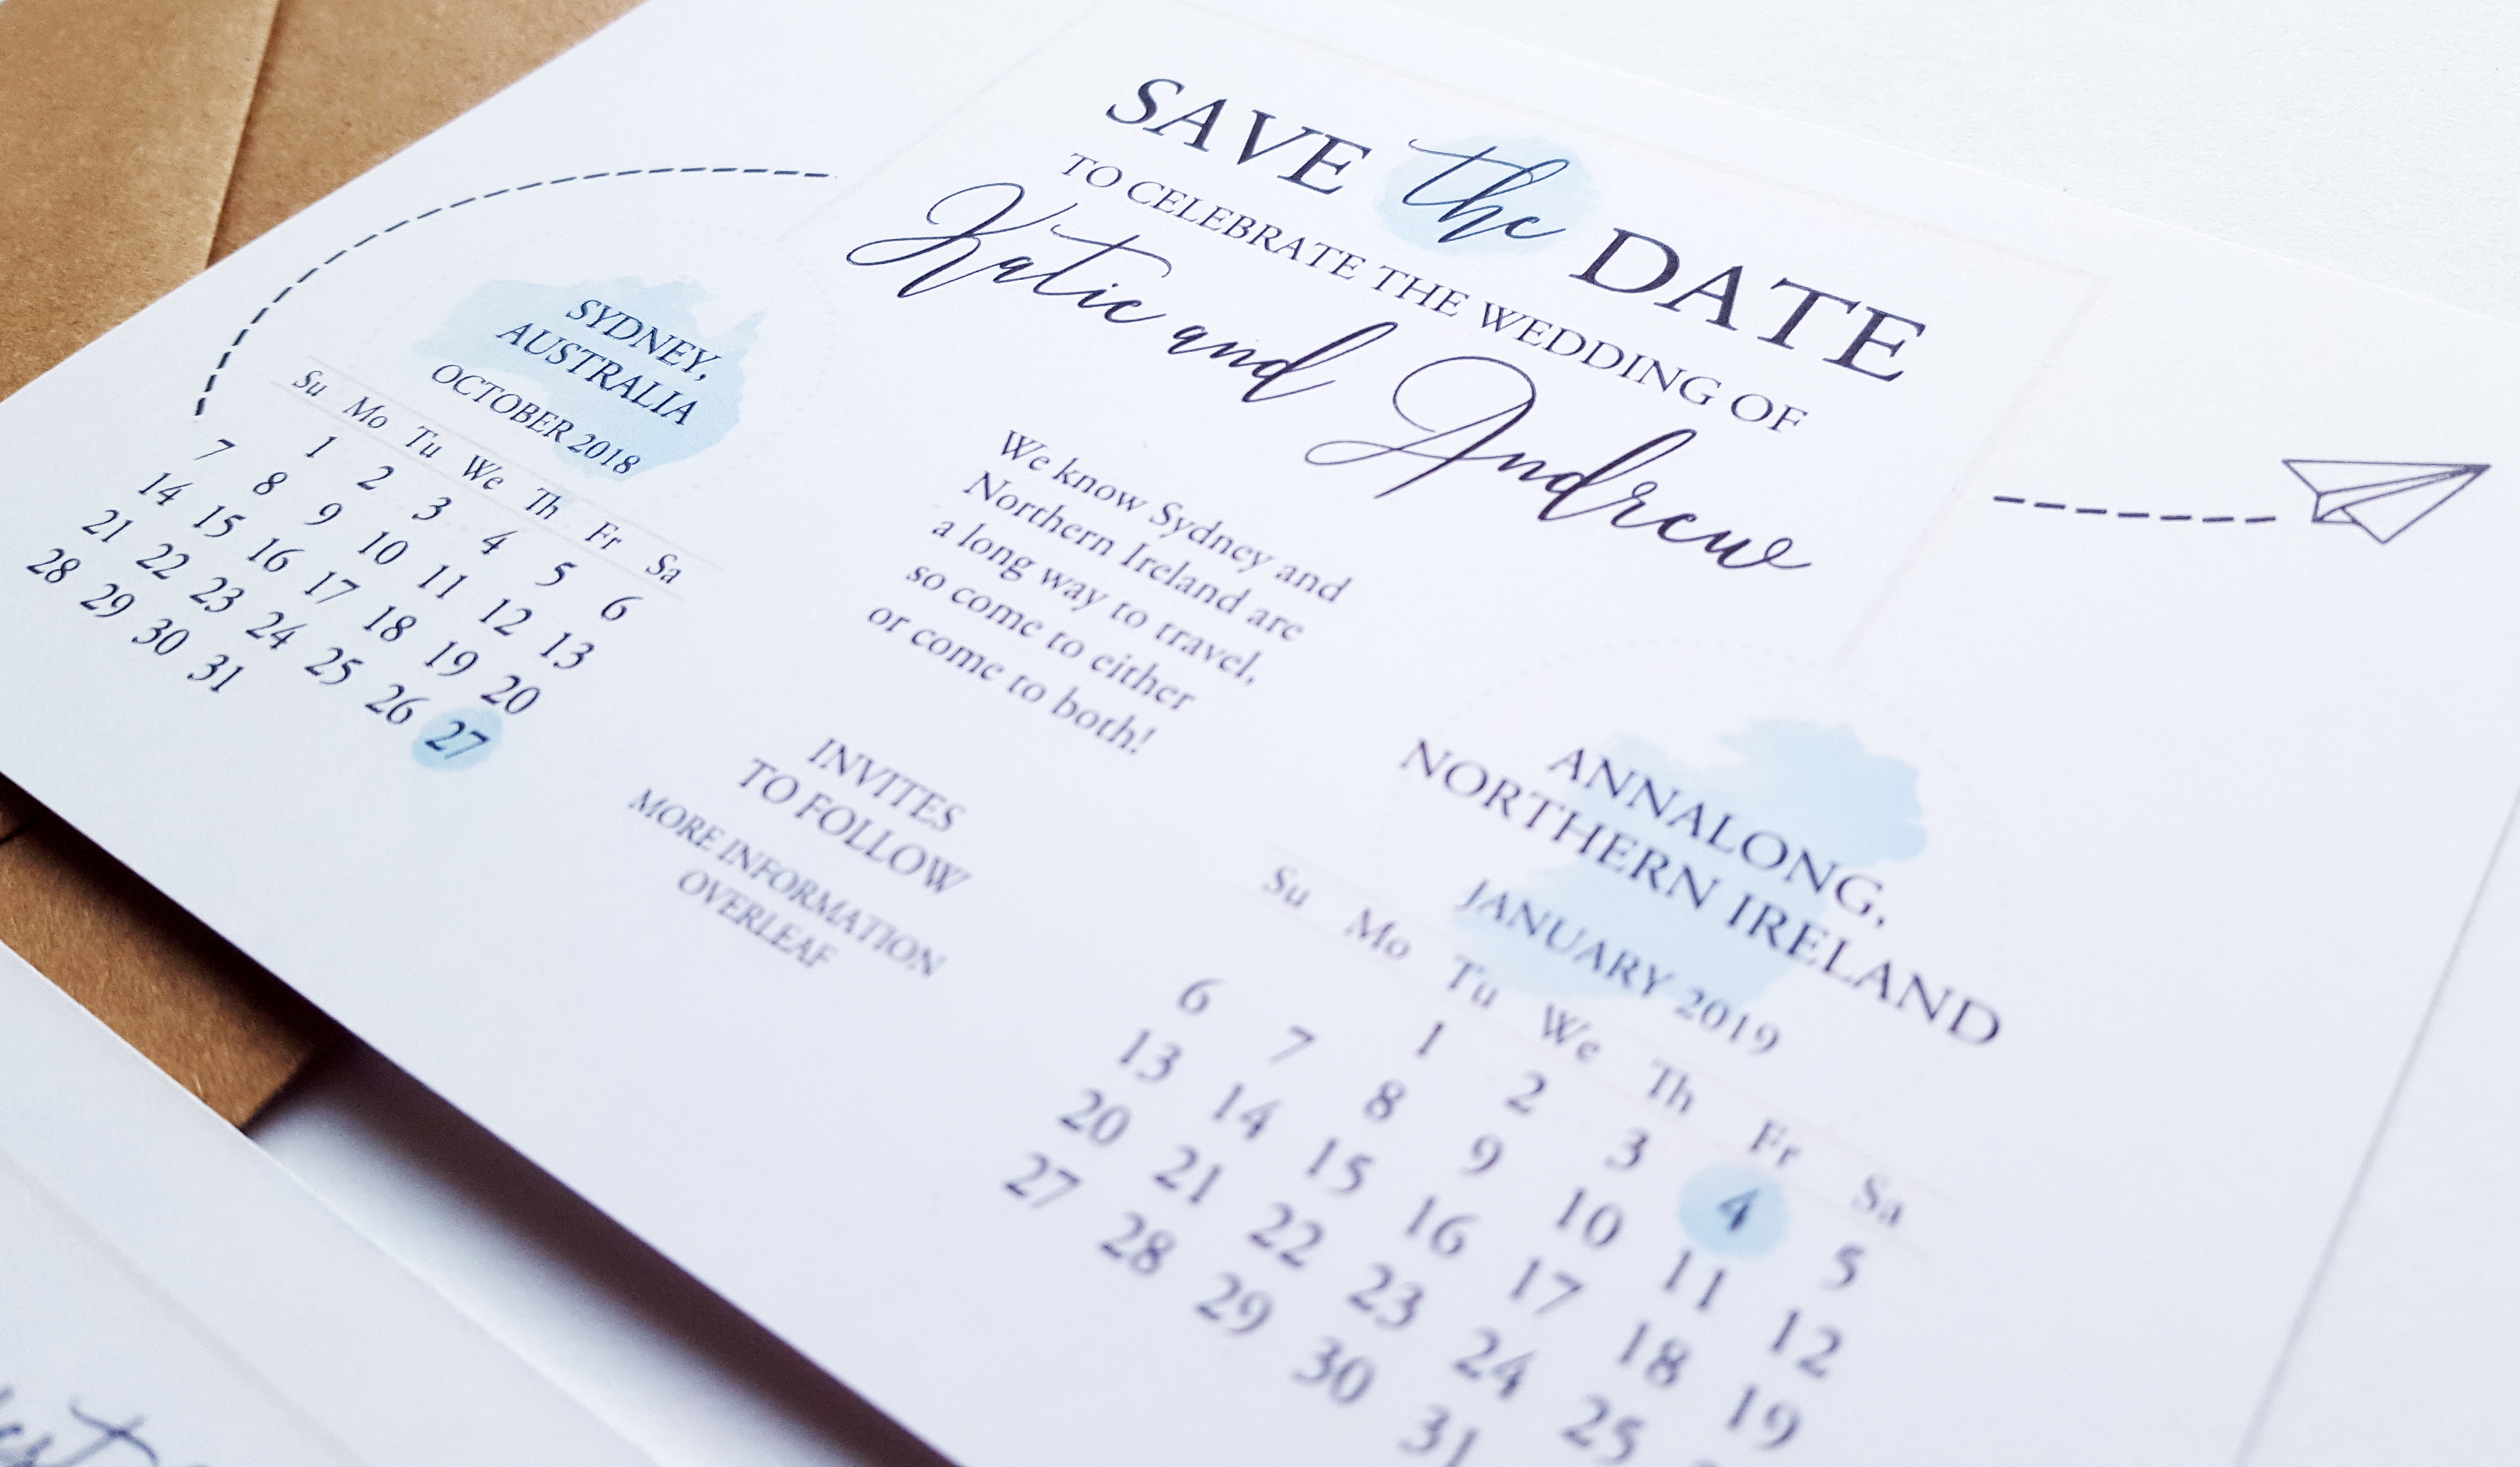 SAVE the DATE
TO CELEBRATE THE WEDDING OF
Katie and Andrew
SYDNEY,
AUSTRALIA
OCTOBER 2018
Su Mo Tu We Th Fr Sa
1 2 3 4 5 6
7 8 9 10 11 12 13
14 15 16 17 18 19 20
21 22 23 24 25 26 27
28 29 30 31
We know Sydney and
Northern Ireland are
a long way to travel,
so come to either
or come to both!
INVITES
TO FOLLOW
MORE INFORMATION
OVERLEAF
ANNALONG,
NORTHERN IRELAND
JANUARY 2019
Su Mo Tu We Th Fr Sa
1 2 3 4 5
6 7 8 9 10 11 12
13 14 15 16 17 18 19
20 21 22 23 24 25
27 28 29 30 31